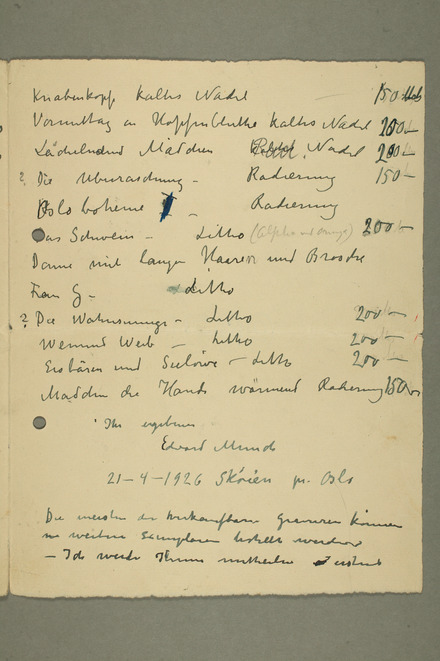 Knabenkopf kaltes Nadel 150 Mk
Vormittag in Hopfenblüthe kaltes Nadel 200 –
Lächelndes Mädchen kalt. Nadel 200 –
? Die Uberaschung – Radierung 150 –
Oslo boheme I – Radierung
Das Schwein – Litho (Alpha und Omega) 200 –
Dame mit langen Haaren und Brosche
Frau G – Litho
? Die Wahnsinnige – Litho 200 –
Weinend Weib – Litho 200 –
Eisbären und Seelöwe – Litho 200 –
Mädchen die Hände wärmend Radierung 150
Ihr ergebener
Edvard Munch
21–4–1926 Sköien pr. Oslo
Die meisten der verkaufbaren Gravuren können
in weitere Exemplaren bestellt werden
– Ich werde Ihnen mittheilen